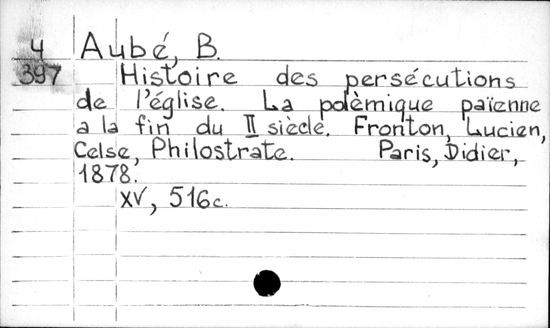 4 Aubé, B.
397 Histoire des persécutions
de l'église. La polèmique païenne
a la fin du II siècle. Fronton, Lucien,
Celse, Philostrate. Paris, Didier,
1878.
XV, 516c.